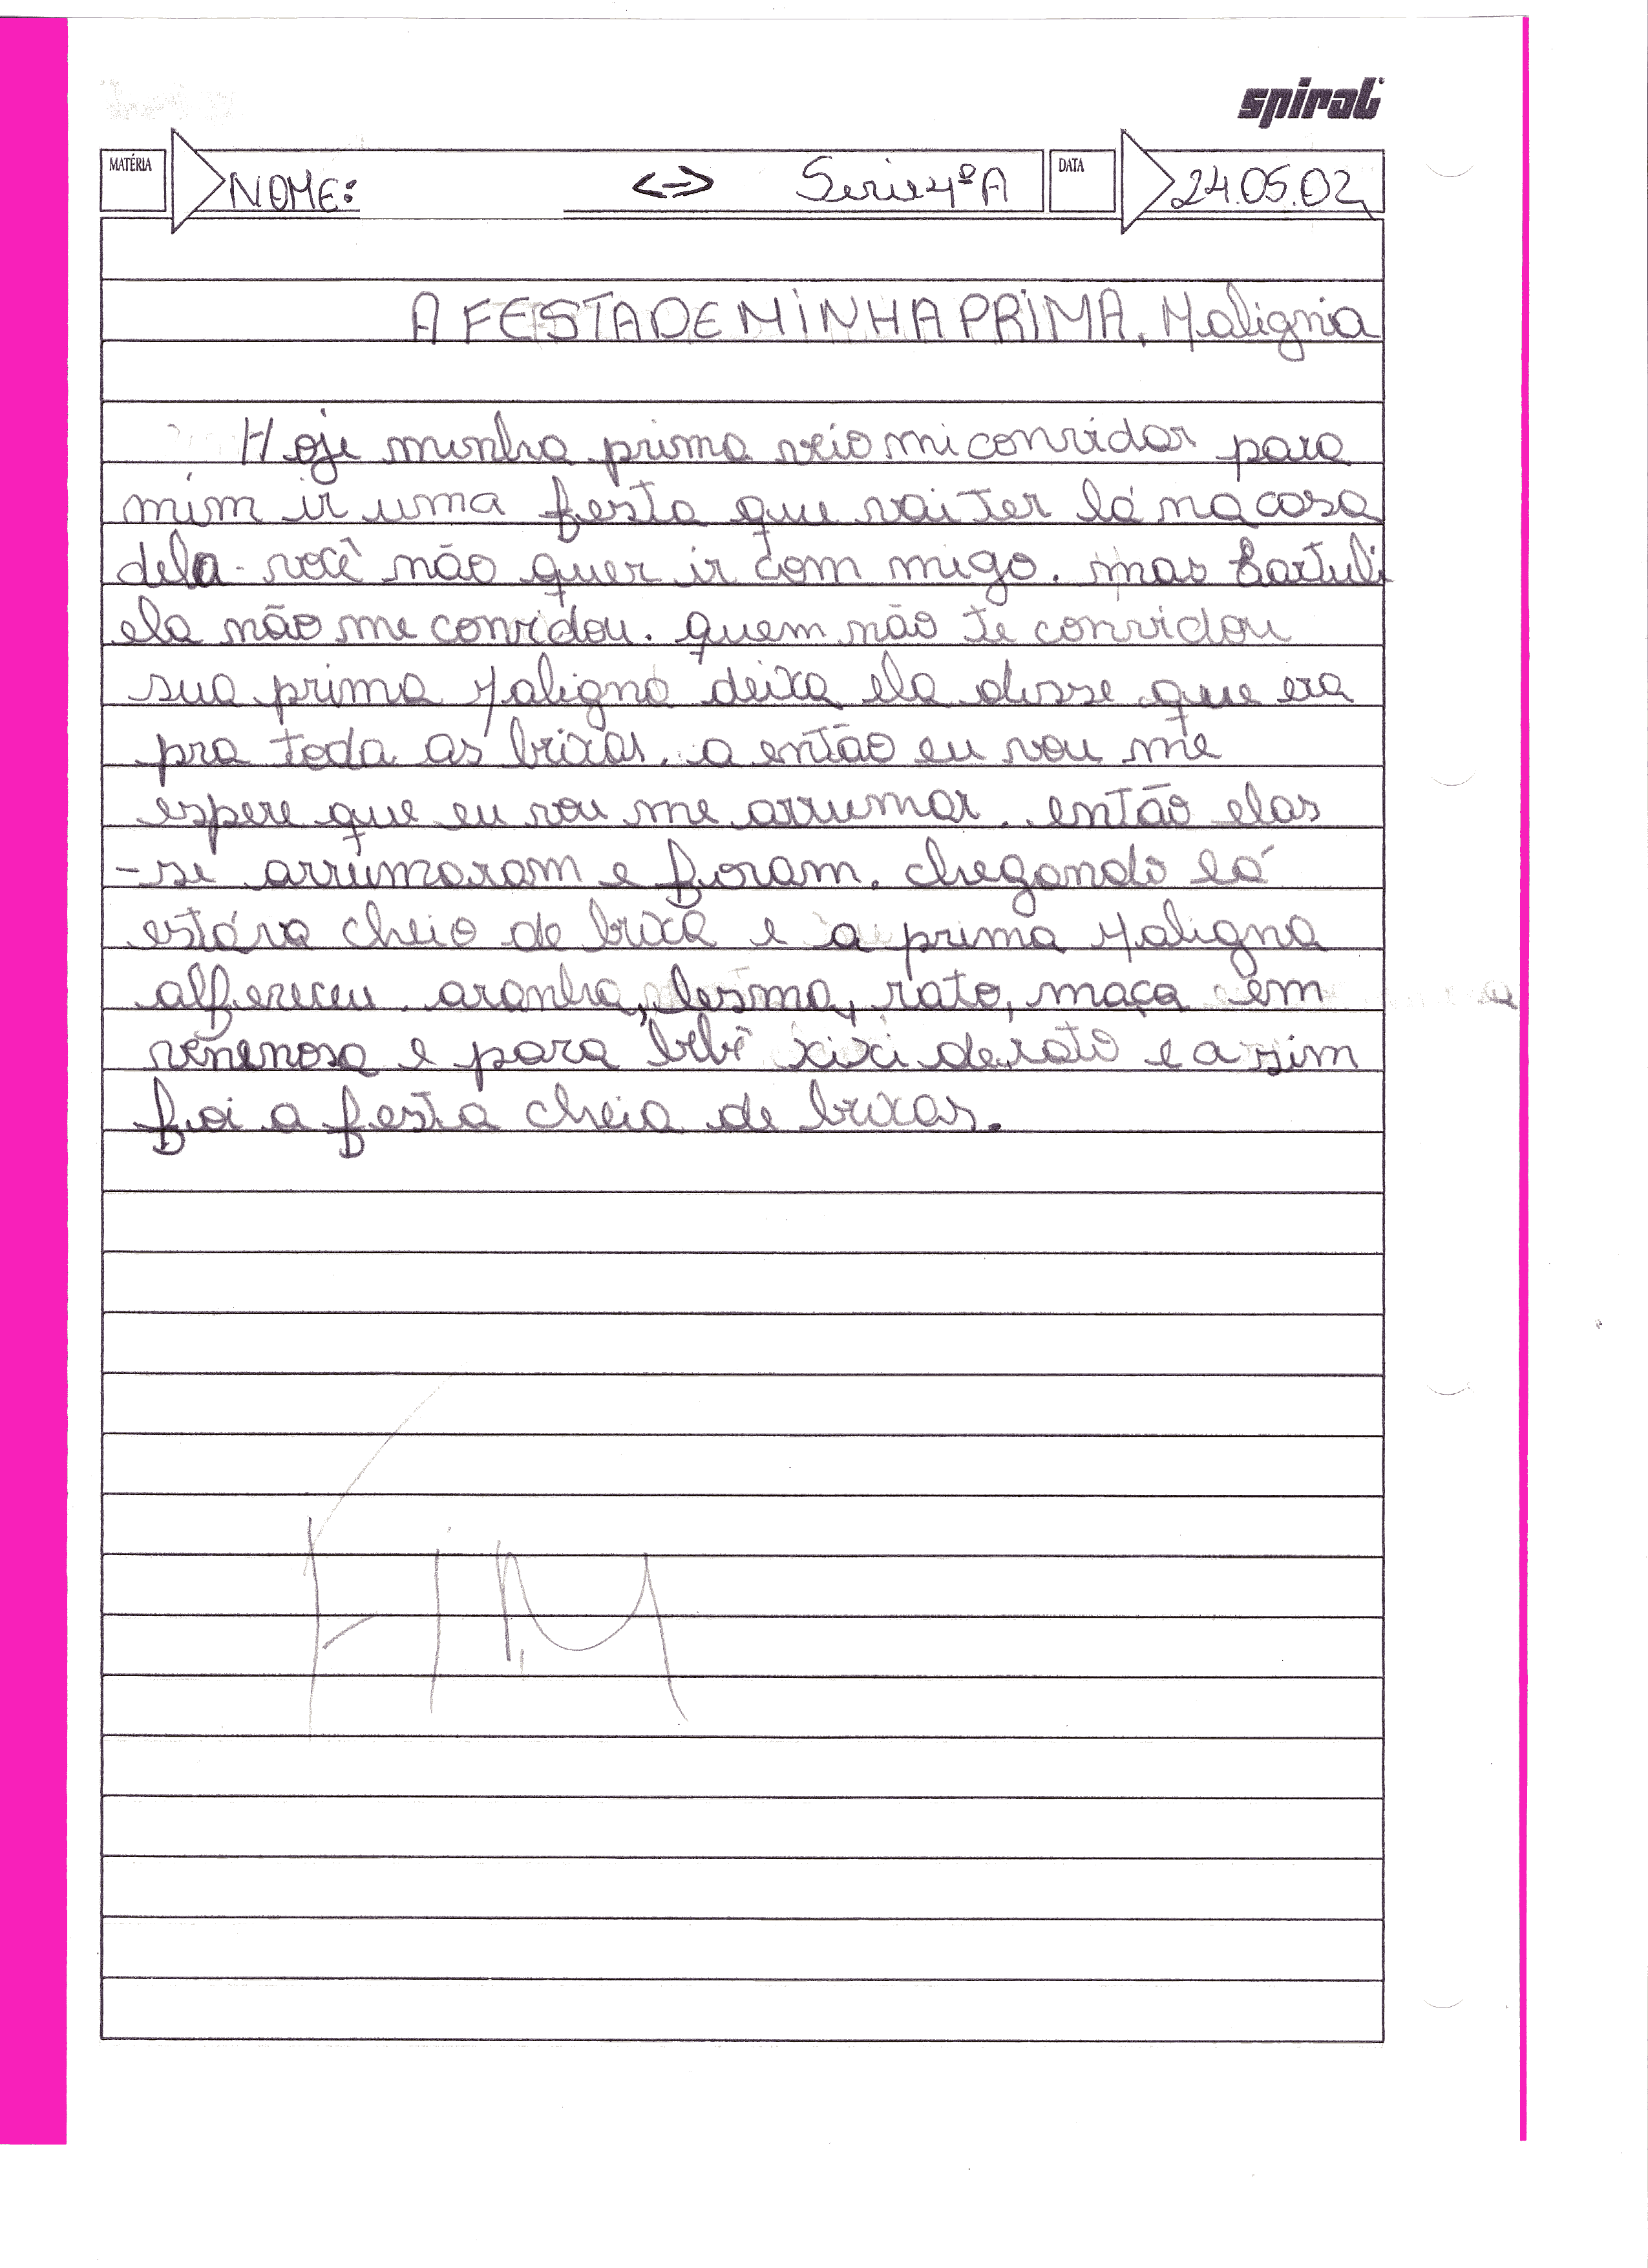 spiral
MATÉRIA NOME: <-> Serie 4ª A DATA 24.05.02
A FESTA DE MINHA PRIMA. Malignia
Hoje minha prima veio mi convidar para
mim ir uma festa que vai ter lá na casa
dela - você não quer ir com migo. mas Bartuli
ela não me convidou. quem não te convidou
sua prima Maligna deixa ela disse que era
pra toda as brixas. a então eu vou me
espere que eu vou me arrumar. então elas
-se arrumaram e foram. chegando lá
estáva cheio de brixa e a prima Maligna
alfereceu aranha, lesma, rato, maça em
venenosa e para bebê xixi de rato e a sim
foi a festa cheia de brixas.
FIM